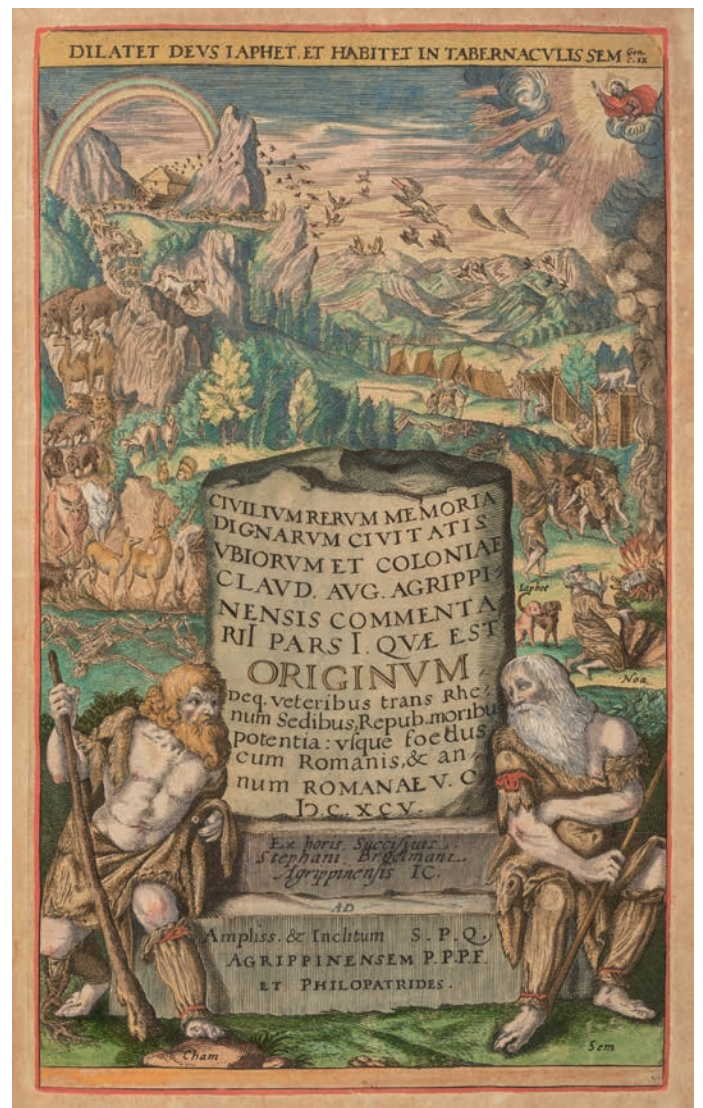 DILATET DEVS IAPHET. ET HABITET IN TABERNACVLIS SEM Gen. c. ix
CIVILIVM RERVM MEMORIA
DIGNARVM CIVITATIS
VBIORVM ET COLONIAE
CLAVD. AVG. AGRIPPI-
NENSIS COMMENTA
RII PARS I. QVÆ EST
ORIGINVM,
Deq. veteribus trans Rhe-
num Sedibus, Repub. moribu
potentia: vsque foedus
cum Romanis, & an-
num ROMANAE V. C.
IↃ.C. XCV.
Iaphet
Noa
Ex horis Succisiuis
Stephani Broelmani
Agrippinensis IC.
AD
Ampliss. & Inclitum S. P. Q.
AGRIPPINENSEM P.P.P.F.
ET PHILOPATRIDES.
Cham
Sem